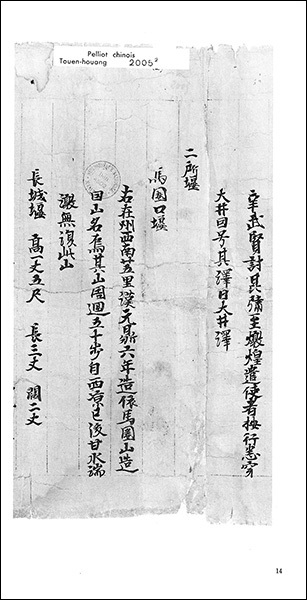 Pelliot chinois
Touen-houang 2005²
辛武賢討昆彌至燉煌遣使者按行悉穿
大井因号其澤曰大井澤
二所堰
馬圈口堰
右在州西南廿五里漢元鼎六年造依馬圈山造
因山名焉其山周迴五十步自西涼已後甘水湍
激無復此山
長城堰 高一丈五尺 長三丈 闊二丈
14